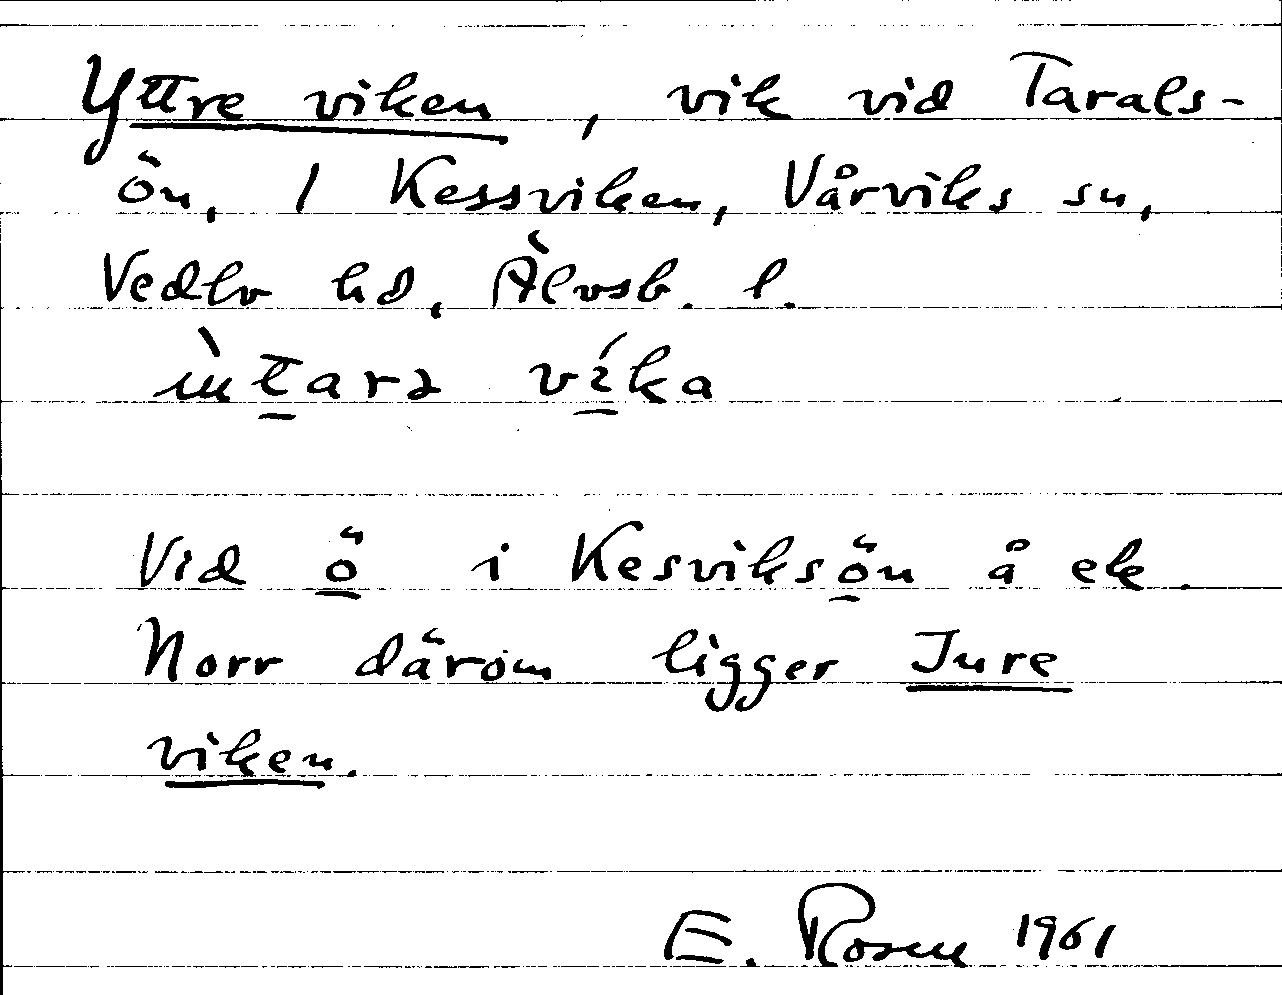 Yttre viken, vik vid Tarals-
ön, 1 Kessviken, Vårviks sn,
Vedbo hd, Älvsb. l.
ỳtarə víka
Vid ö i Kesviksön å ek.
Norr därom ligger Jure
viken.
E. Rosen 1961